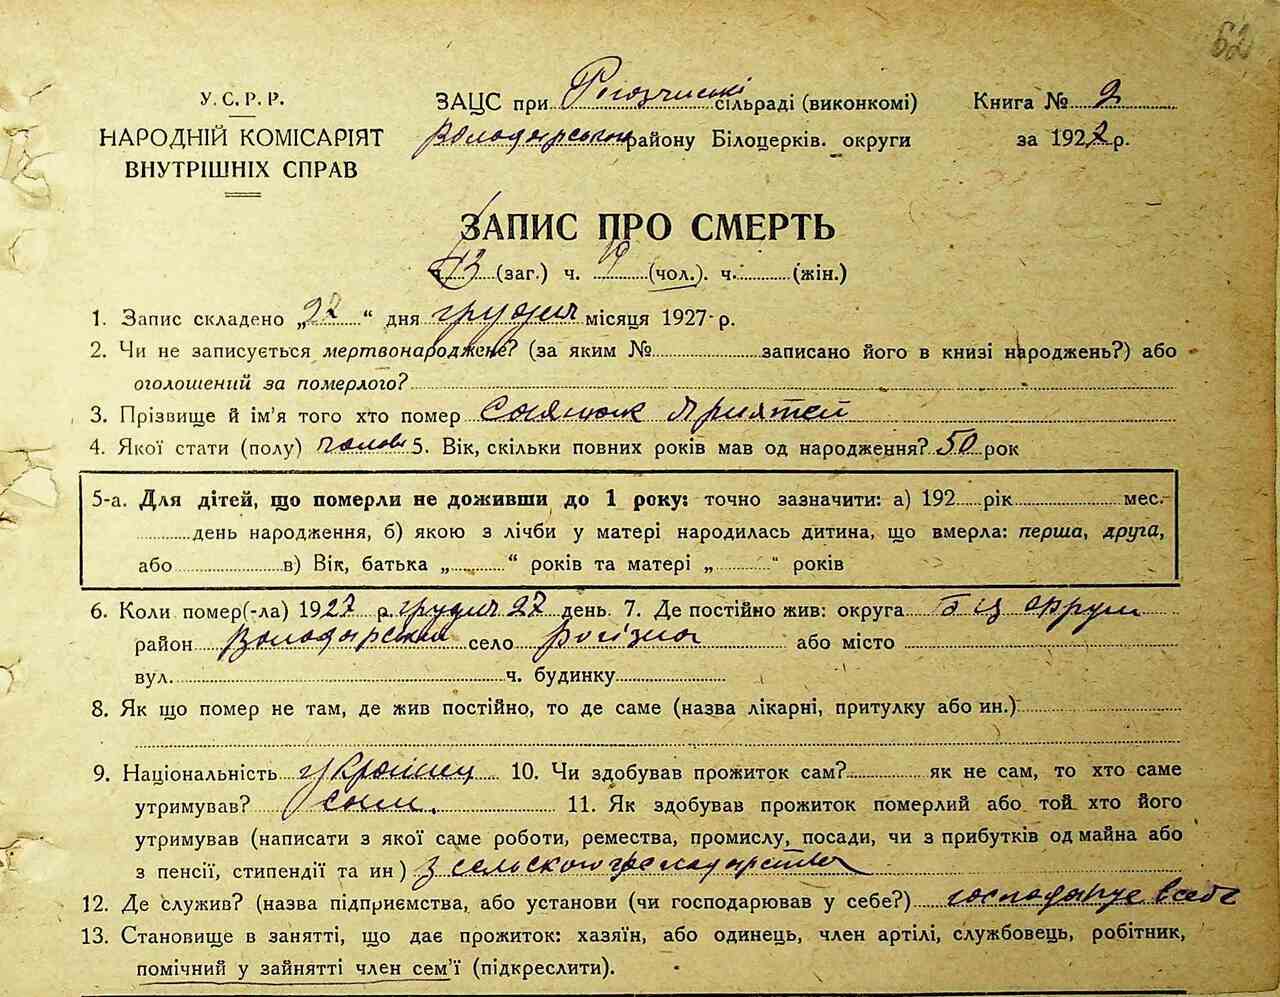 62
У.С.Р.Р.
НАРОДНІЙ КОМІСАРІЯТ
ВНУТРІШНІХ СПРАВ
ЗАЦС при сільраді (виконкомі)
Володарського району Білоцерків. округи
Книга № 2
за 1927 р.
ЗАПИС ПРО СМЕРТЬ
ч. 43 (заг.) ч. 19 (чол.). ч. (жін.)
1. Запис складено „27“ дня грудня місяця 1927 р.
2. Чи не записується мертвонароджене? (за яким № записано його в книзі народжень?) або
оголошений за померлого?
3. Прізвище й ім'я того хто помер
4. Якої стати (полу) чолов 5. Вік, скільки повних років мав од народження? 50 рок
5-а. Для дітей, що померли не доживши до 1 року: точно зазначити: а) 192 рік мес.
день народження, б) якою з лічби у матері народилась дитина, що вмерла: перша, друга,
або в) Вік, батька „ “ років та матері „ “ років
6. Коли помер(-ла) 1927 р. грудня 27 день. 7. Де постійно жив: округа Б Ц округи
район Володарський село Рогізна або місто
вул. ч. будинку
8. Як що помер не там, де жив постійно, то де саме (назва лікарні, притулку або ин.)
9. Національність Українец 10. Чи здобував прожиток сам? як не сам, то хто саме
утримував? 11. Як здобував прожиток померлий або той хто його
утримував (написати з якої саме роботи, ремества, промислу, посади, чи з прибутків од майна або
з пенсії, стипендії та ин ) з сельского господарства
12. Де служив? (назва підприємства, або установи (чи господарював у себе?) господарує в себе
13. Становище в занятті, що дає прожиток: хазяїн, або одинець, член артілі, службовець, робітник,
помічний у зайнятті член сем'ї (підкреслити).